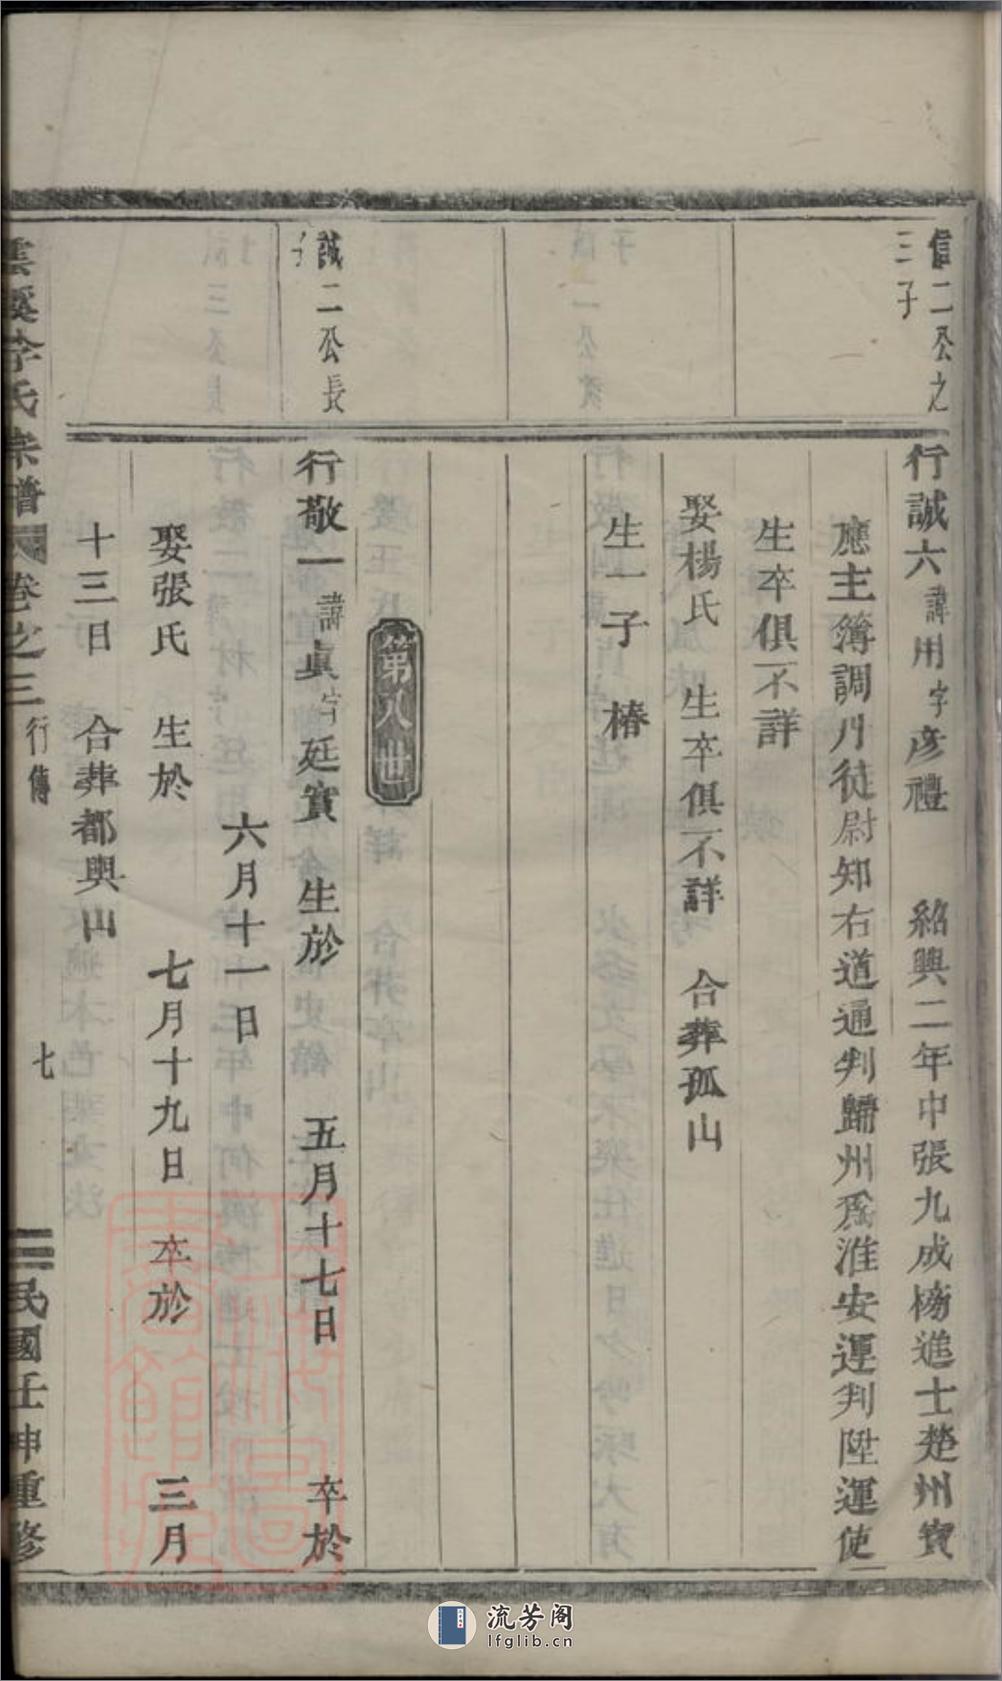 信二公之
三子
行誠六諱用字彥禮 紹興二年中張九成榜進士楚州寶
應主簿調川徒尉知右道通判歸州為淮安運判陞運使
生卒俱不詳
娶楊氏 生卒俱不詳 合葬孤山
生一子 椿
第八世
誠二公長
子
行敬一諱眞字廷實 生於 五月十七日 卒於
六月十一日
娶張氏 生於 七月十九日 卒於 三月
十三日 合葬都興山
雲溪李氏宗譜 卷之三 行傳 七 民國壬申重修
流芳阁
lfglib.cn